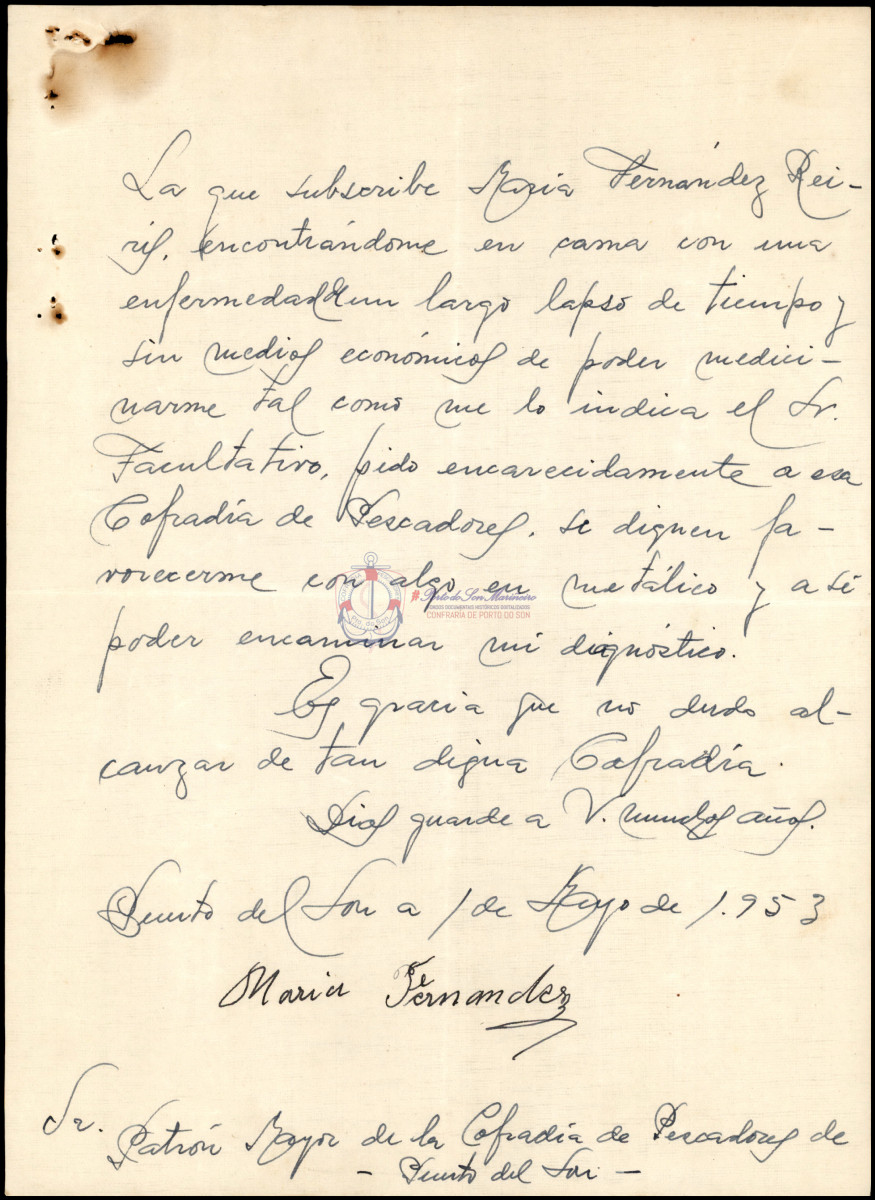 La que subscribe Maria Fernández Rei-
ris, encontrándome en cama con una
enfermedad de un largo lapso de tiempo y
sin medios económicos de poder medici-
narme tal como me lo indica el Sr.
Facultativo, pido encarecidamente a esa
Cofradía de Pescadores, se dignen fa-
vorecerme con algo en metálico y así
#PortodoSonMarineiro
FONDOS DOCUMENTAIS HISTÓRICOS DIXITALIZADOS
CONFRARÍA DE PORTO DO SON
poder encaminar mi diagnóstico.
Es gracia que no dudo al-
canzar de tan digna Cofradía.
Dios guarde a V. muchos años.
Puerto del Son a 1 de Mayo de 1.953
Maria Fernandez
Sr.
Patrón Mayor de la Cofradía de Pescadores de
- Puerto del Son -